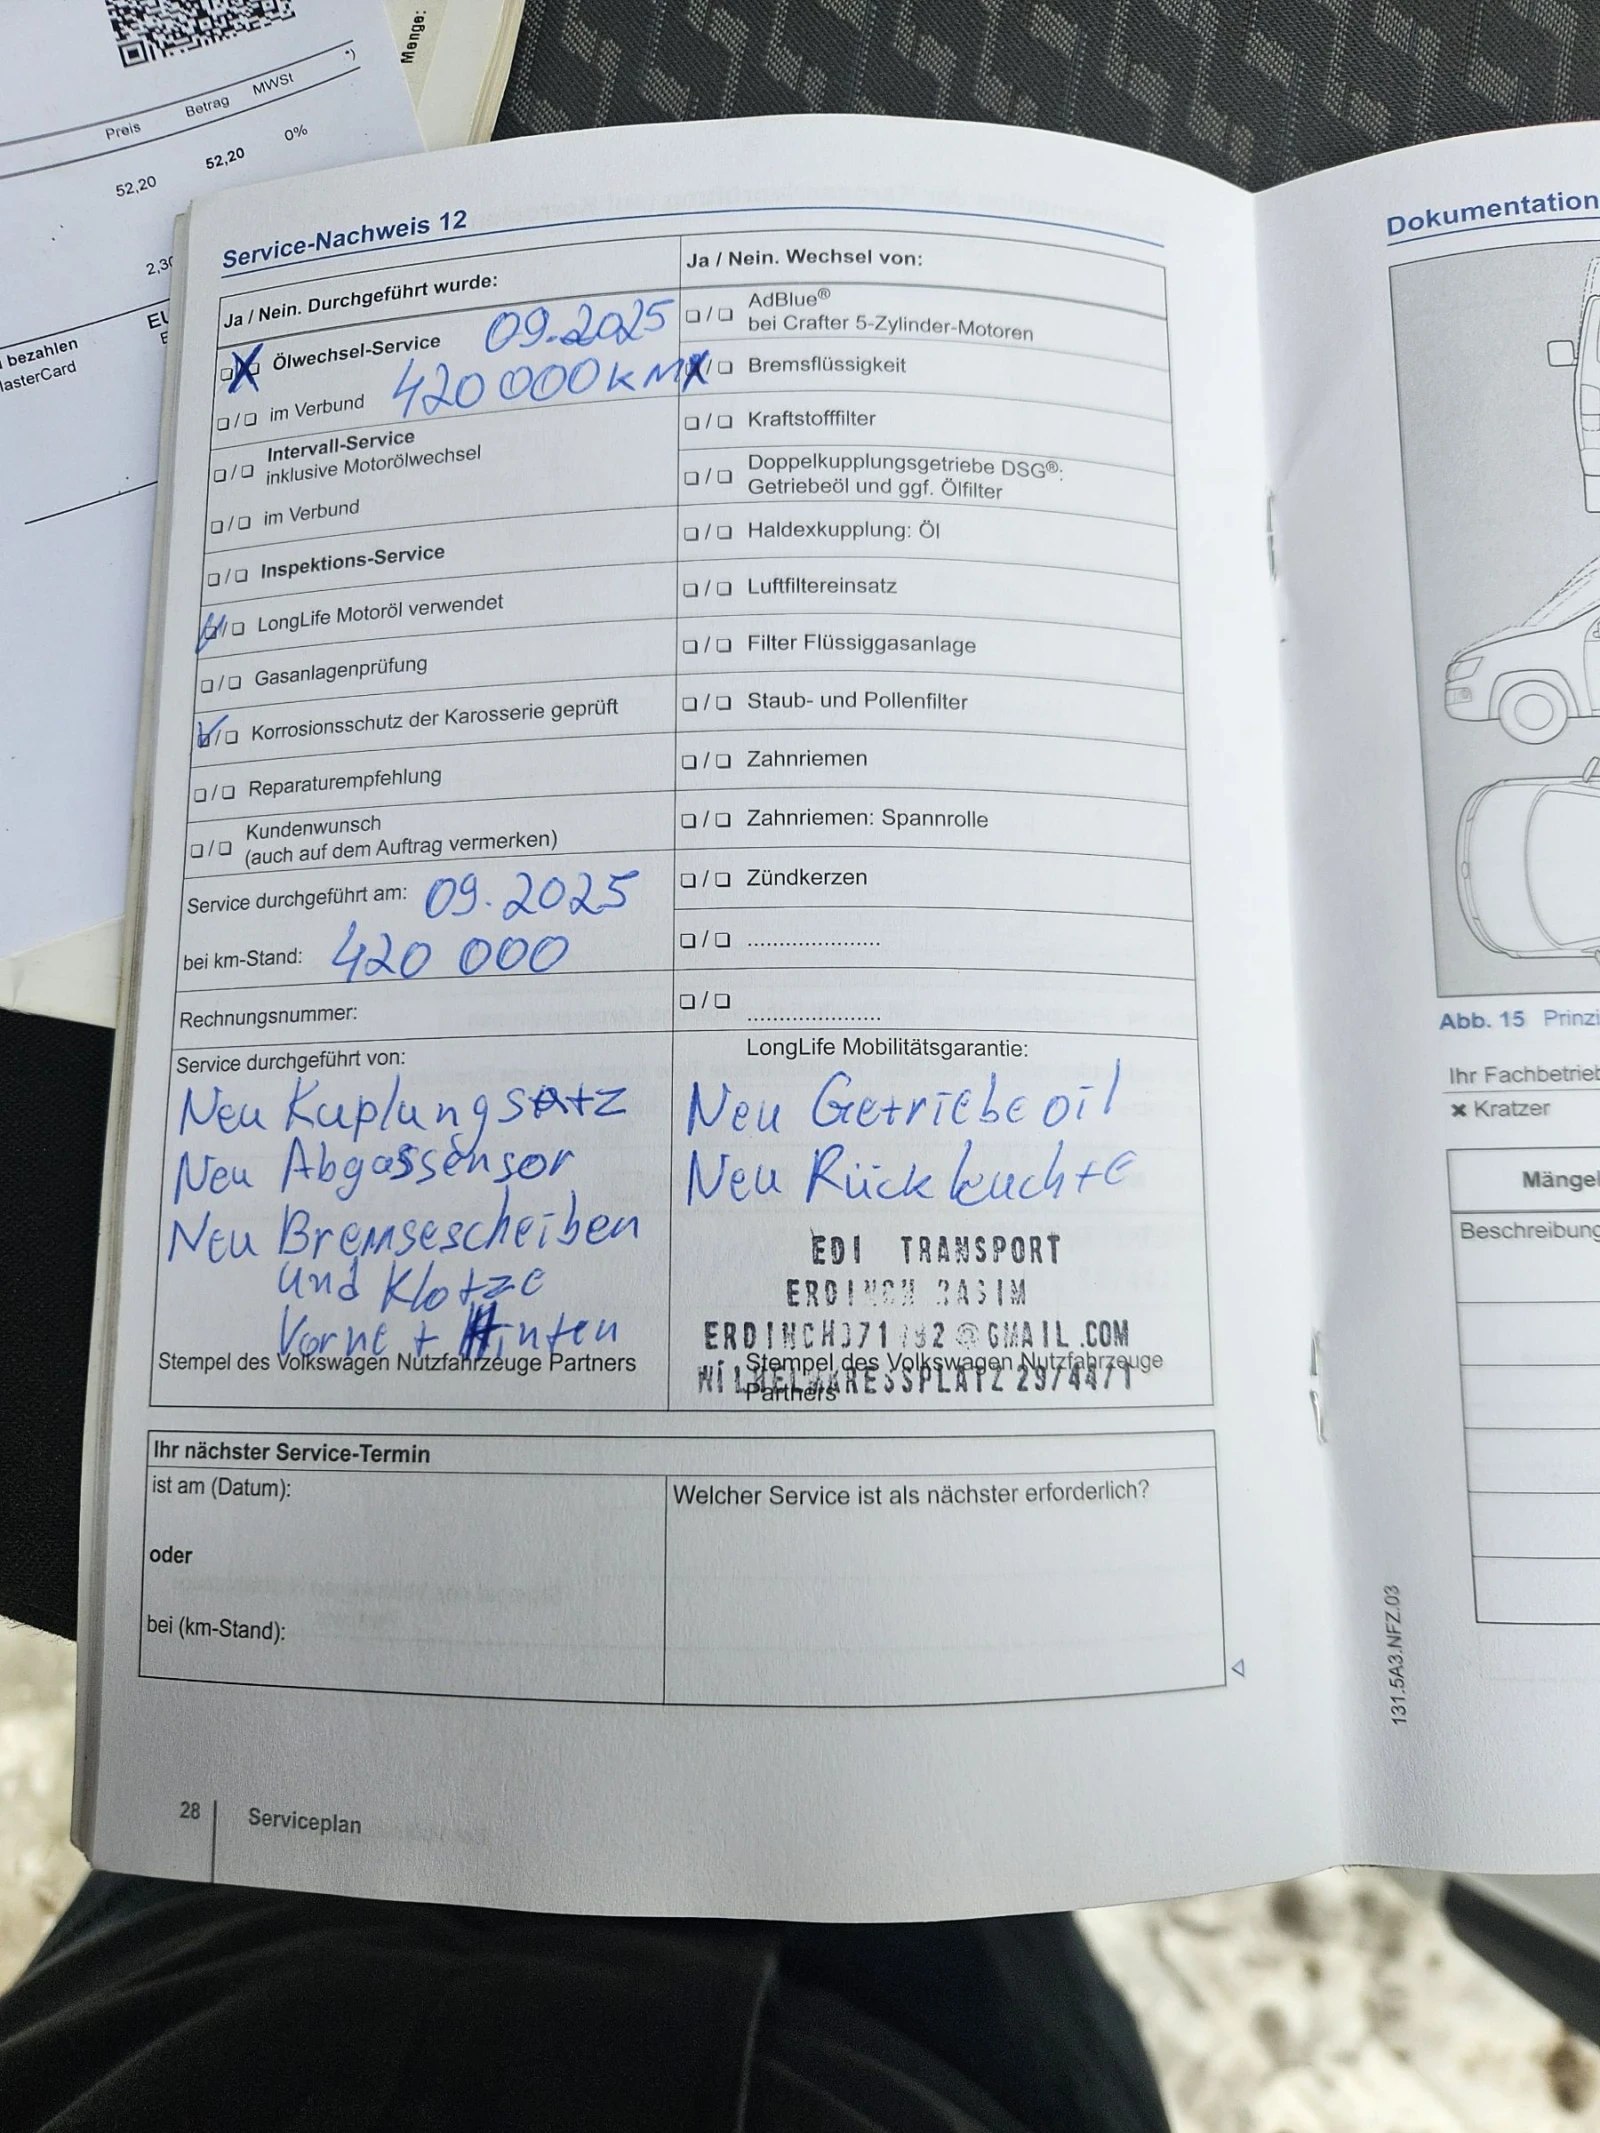 Menge:
Preis Betrag MWSt *)
52,20 52,20 0%
2,30
bezahlen
MasterCard
Service-Nachweis 12
Ja / Nein. Durchgeführt wurde:
❏/❏ Ölwechsel-Service 09.2025
420 000 KM
❏/❏ im Verbund
❏/❏ Intervall-Service
inklusive Motorölwechsel
❏/❏ im Verbund
❏/❏ Inspektions-Service
❏/❏ LongLife Motoröl verwendet
❏/❏ Gasanlagenprüfung
❏/❏ Korrosionsschutz der Karosserie geprüft
❏/❏ Reparaturempfehlung
❏/❏ Kundenwunsch
(auch auf dem Auftrag vermerken)
Service durchgeführt am: 09.2025
bei km-Stand: 420 000
Rechnungsnummer:
Service durchgeführt von:
Neu Kuplungsatz
Neu Abgassensor
Neu Bremsescheiben
und Klotze
Vorne + Hinten
Stempel des Volkswagen Nutzfahrzeuge Partners
Ja / Nein. Wechsel von:
❏/❏ AdBlue®
bei Crafter 5-Zylinder-Motoren
❏/❏ Bremsflüssigkeit
❏/❏ Kraftstofffilter
❏/❏ Doppelkupplungsgetriebe DSG®:
Getriebeöl und ggf. Ölfilter
❏/❏ Haldexkupplung: Öl
❏/❏ Luftfiltereinsatz
❏/❏ Filter Flüssiggasanlage
❏/❏ Staub- und Pollenfilter
❏/❏ Zahnriemen
❏/❏ Zahnriemen: Spannrolle
❏/❏ Zündkerzen
❏/❏ .....................
❏/❏ .....................
LongLife Mobilitätsgarantie:
Neu Getriebeoil
Neu Rückleuchte
EDI TRANSPORT
@GMAIL.COM
29/44/1
Stempel des Volkswagen Nutzfahrzeuge
Partners
Ihr nächster Service-Termin
ist am (Datum):
oder
bei (km-Stand):
Welcher Service ist als nächster erforderlich?
28 Serviceplan
Dokumentation
Abb. 15
Ihr Fachbetrieb
✖ Kratzer
Mängel
Beschreibung
131.5A3.NFZ.03